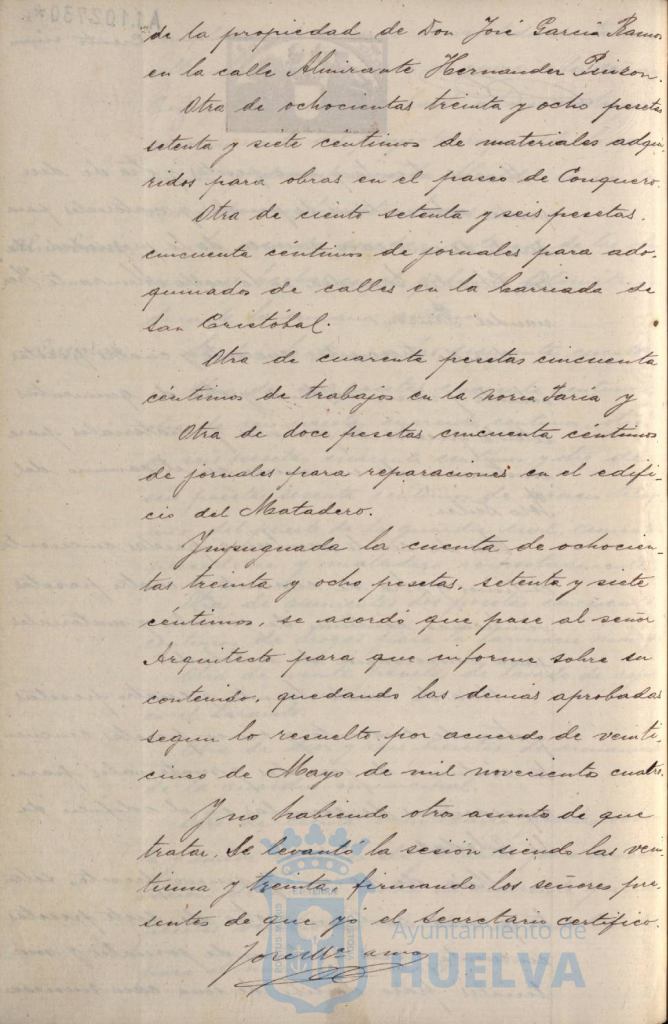 de la propiedad de Don José García Ramos
en la calle Almirante Hernandez Pinzon.
Otra de ochocientas treinta y ocho pesetas
setenta y siete céntimos de materiales adqui-
ridos para obras en el paseo de Conquero.
Otra de ciento setenta y seis pesetas,
cincuenta céntimos de jornales para ado-
quinados de calles en la barriada de
San Cristóbal.
Otra de cuarenta pesetas cincuenta
céntimos de trabajos en la noria Taria y
Otra de doce pesetas cincuenta céntimos
de jornales para reparaciones en el edifi-
cio del Matadero.
Impugnada la cuenta de ochocien-
tas treinta y ocho pesetas, setenta y siete
céntimos, se acordó que pase al señor
Arquitecto para que informe sobre su
contenido, quedando las demas aprobadas
segun lo resuelto por acuerdo de veinti-
cinco de Mayo de mil novecientos cuatro.
Y no habiendo otros asuntos de que
tratar, Se levantó la sesión siendo las vein-
tiuna y treinta, firmando los señores pre-
sentes de que yó el Secretario certifico.
Ayuntamiento de
HUELVA